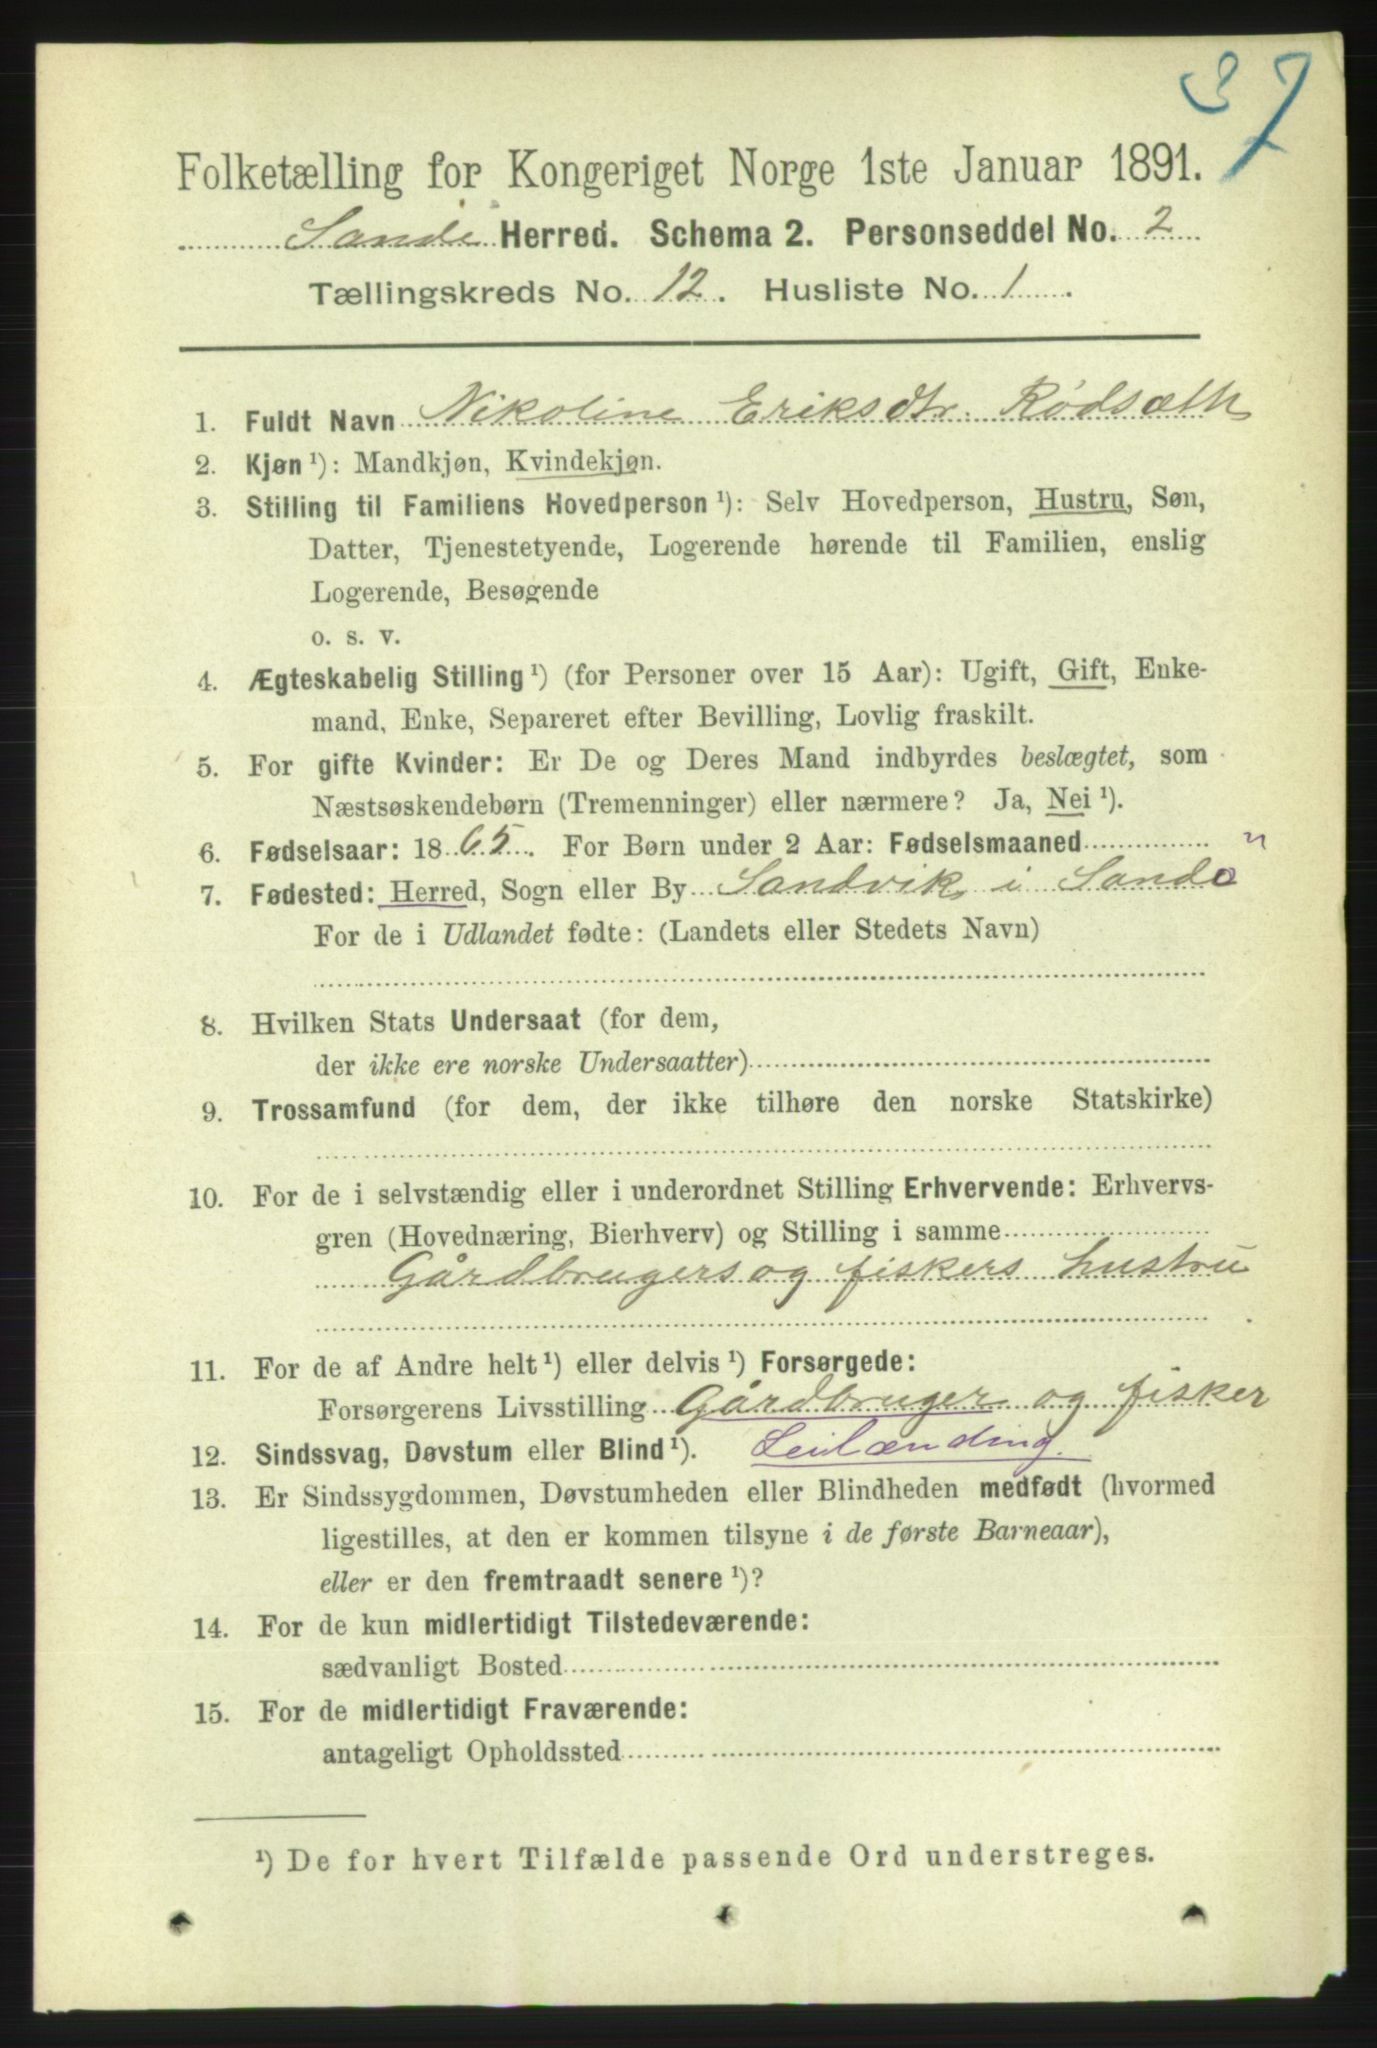 37
Folketælling for Kongeriget Norge 1ste Januar 1891.
Sande Herred. Schema 2. Personseddel No. 2
Tællingskreds No. 12. Husliste No. 1.
1. Fuldt Navn Nikoline Eriksdtr. Rødsæth
2. Kjøn ¹): Mandkjøn, Kvindekjøn.
3. Stilling til Familiens Hovedperson ¹): Selv Hovedperson, Hustru, Søn,
Datter, Tjenestetyende, Logerende hørende til Familien, enslig
Logerende, Besøgende
o. s. v.
4. Ægteskabelig Stilling ¹) (for Personer over 15 Aar): Ugift, Gift, Enke-
mand, Enke, Separeret efter Bevilling, Lovlig fraskilt.
5. For gifte Kvinder: Er De og Deres Mand indbyrdes beslægtet, som
Næstsøskendebørn (Tremenninger) eller nærmere? Ja, Nei ¹).
6. Fødselsaar: 1865. For Børn under 2 Aar: Fødselsmaaned
7. Fødested: Herred, Sogn eller By Sandvik i Sande
For de i Udlandet fødte: (Landets eller Stedets Navn)
8. Hvilken Stats Undersaat (for dem,
der ikke ere norske Undersaatter)
9. Trossamfund (for dem, der ikke tilhøre den norske Statskirke)
10. For de i selvstændig eller i underordnet Stilling Erhvervende: Erhvervs-
gren (Hovednæring, Bierhverv) og Stilling i samme
Gårdbrugers og fiskers hustru
11. For de af Andre helt ¹) eller delvis ¹) Forsørgede:
Forsørgerens Livsstilling Gårdbruger og fisker
12. Sindssvag, Døvstum eller Blind ¹). Leilænding.
13. Er Sindssygdommen, Døvstumheden eller Blindheden medfødt (hvormed
ligestilles, at den er kommen tilsyne i de første Barneaar),
eller er den fremtraadt senere ¹)?
14. For de kun midlertidigt Tilstedeværende:
sædvanligt Bosted
15. For de midlertidigt Fraværende:
antageligt Opholdssted
¹) De for hvert Tilfælde passende Ord understreges.